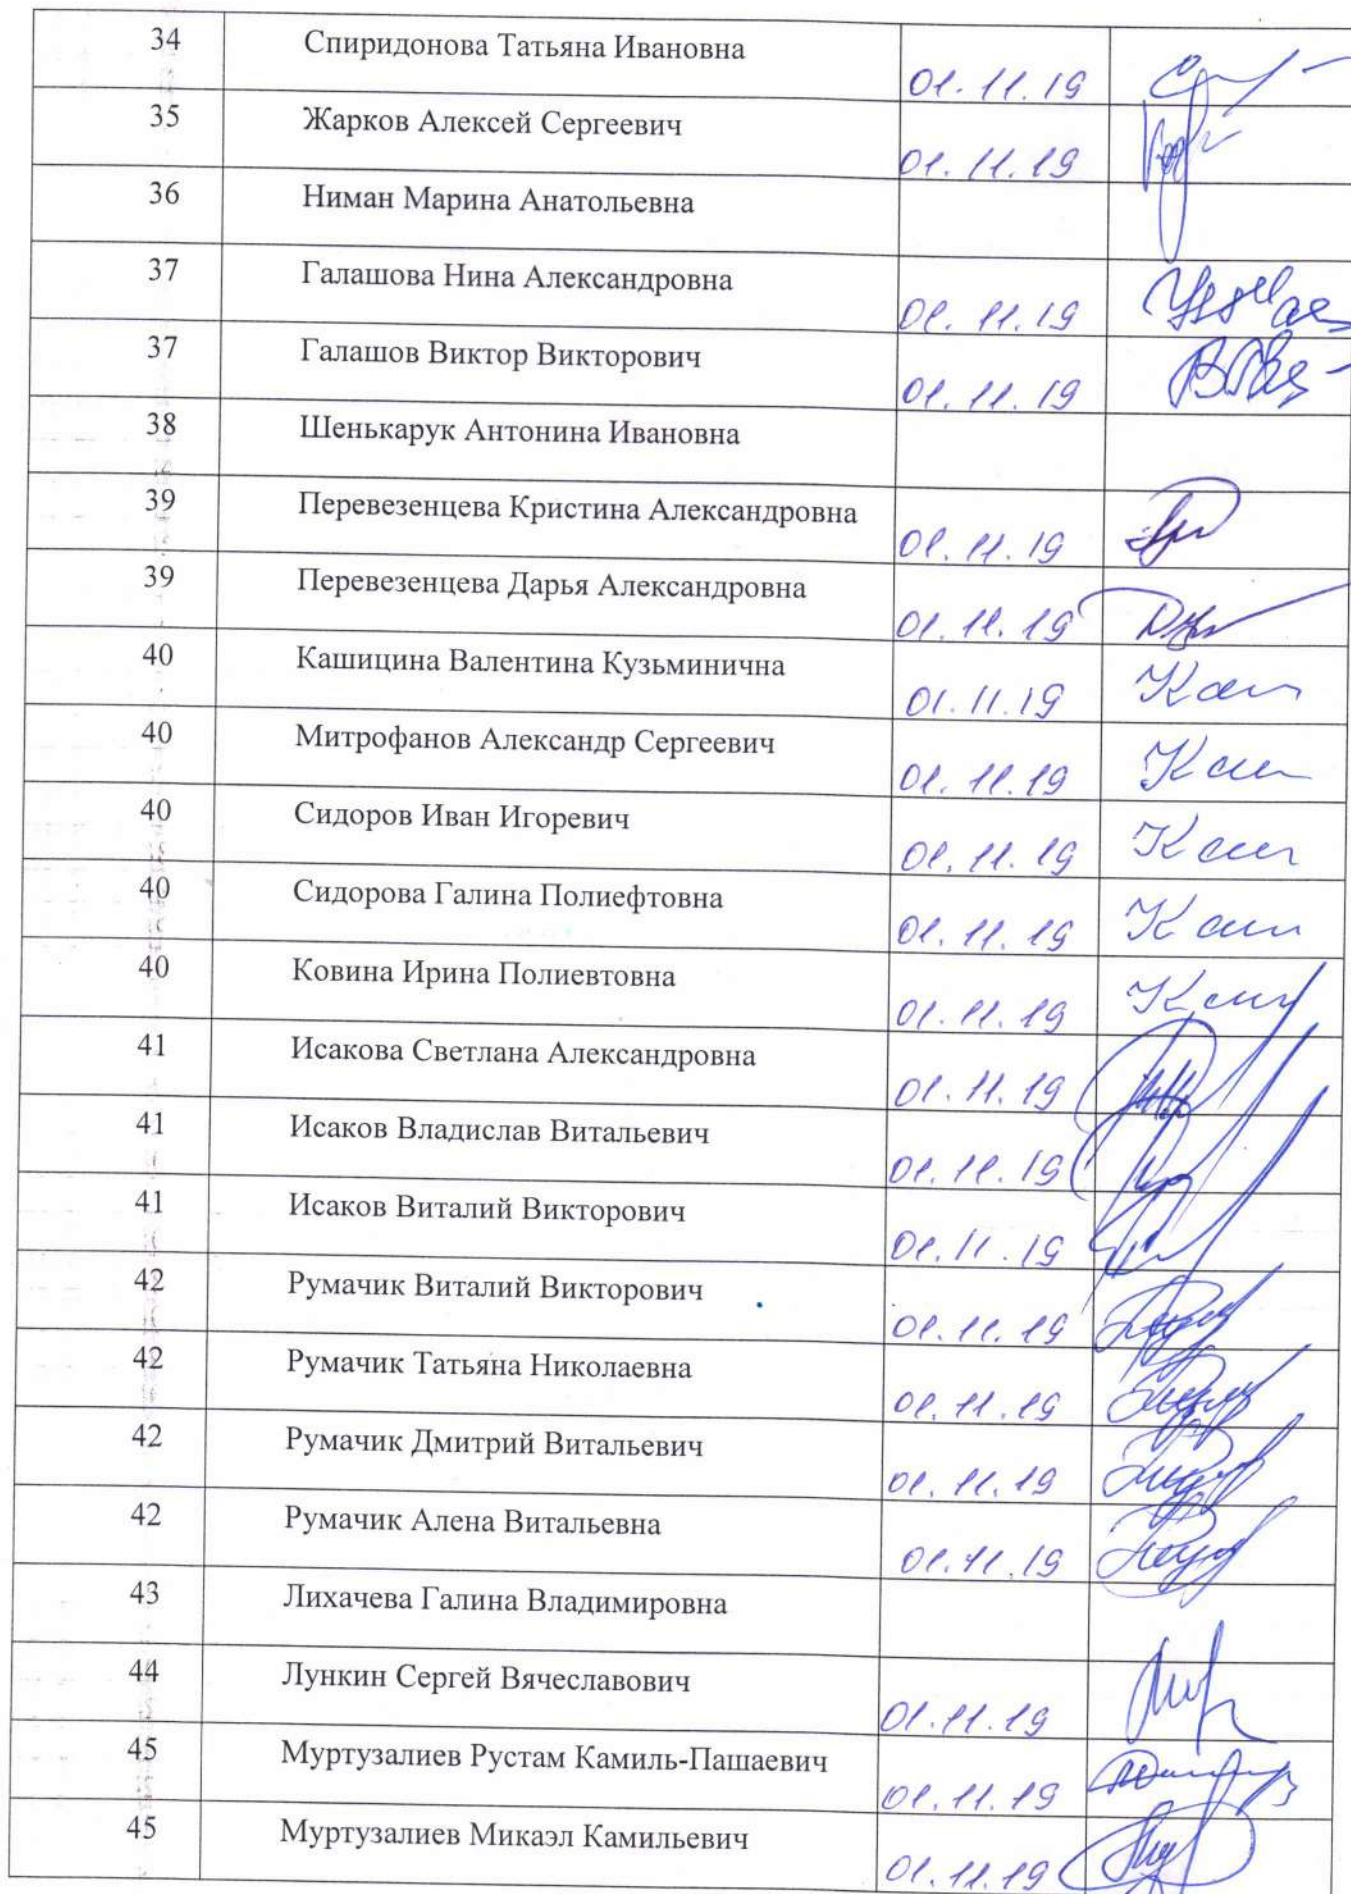 34 Спиридонова Татьяна Ивановна 01.11.19
35 Жарков Алексей Сергеевич 01.11.19
36 Ниман Марина Анатольевна
37 Галашова Нина Александровна 01.11.19
37 Галашов Виктор Викторович 01.11.19
38 Шенькарук Антонина Ивановна
39 Перевезенцева Кристина Александровна 01.11.19
39 Перевезенцева Дарья Александровна 01.11.19
40 Кашицина Валентина Кузьминична 01.11.19
40 Митрофанов Александр Сергеевич 01.11.19
40 Сидоров Иван Игоревич 01.11.19
40 Сидорова Галина Полиефтовна 01.11.19
40 Ковина Ирина Полиевтовна 01.11.19
41 Исакова Светлана Александровна 01.11.19
41 Исаков Владислав Витальевич 01.11.19
41 Исаков Виталий Викторович 01.11.19
42 Румачик Виталий Викторович 01.11.19
42 Румачик Татьяна Николаевна 01.11.19
42 Румачик Дмитрий Витальевич 01.11.19
42 Румачик Алена Витальевна 01.11.19
43 Лихачева Галина Владимировна
44 Лункин Сергей Вячеславович 01.11.19
45 Муртузалиев Рустам Камиль-Пашаевич 01.11.19
45 Муртузалиев Микаэл Камильевич 01.11.19